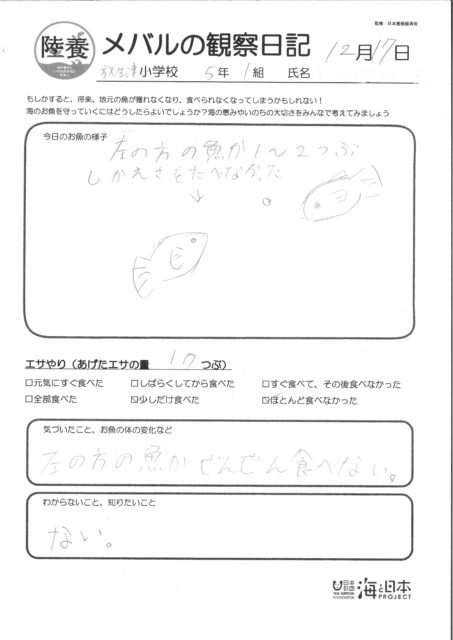 監修:日本養殖振興会
陸養
メバルの観察日記 12月17日
放生津小学校 5年 1組 氏名
もしかすると、将来、地元の魚が獲れなくなり、食べられなくなってしまうかもしれない!
海のお魚を守っていくにはどうしたらよいでしょうか?海の恵みやいのちの大切さをみんなで考えてみましょう
今日のお魚の様子
左の方の魚が1〜2つぶ
しかえさをたべなかった
エサやり(あげたエサの量 17 つぶ)
□元気にすぐ食べた □しばらくしてから食べた □すぐ食べて、その後食べなかった
□全部食べた ☑少しだけ食べた ☑ほとんど食べなかった
気づいたこと、お魚の体の変化など
左の方の魚がぜんぜん食べない。
わからないこと、知りたいこと
ない。
日本財団 THE NIPPON FOUNDATION 海と日本 PROJECT